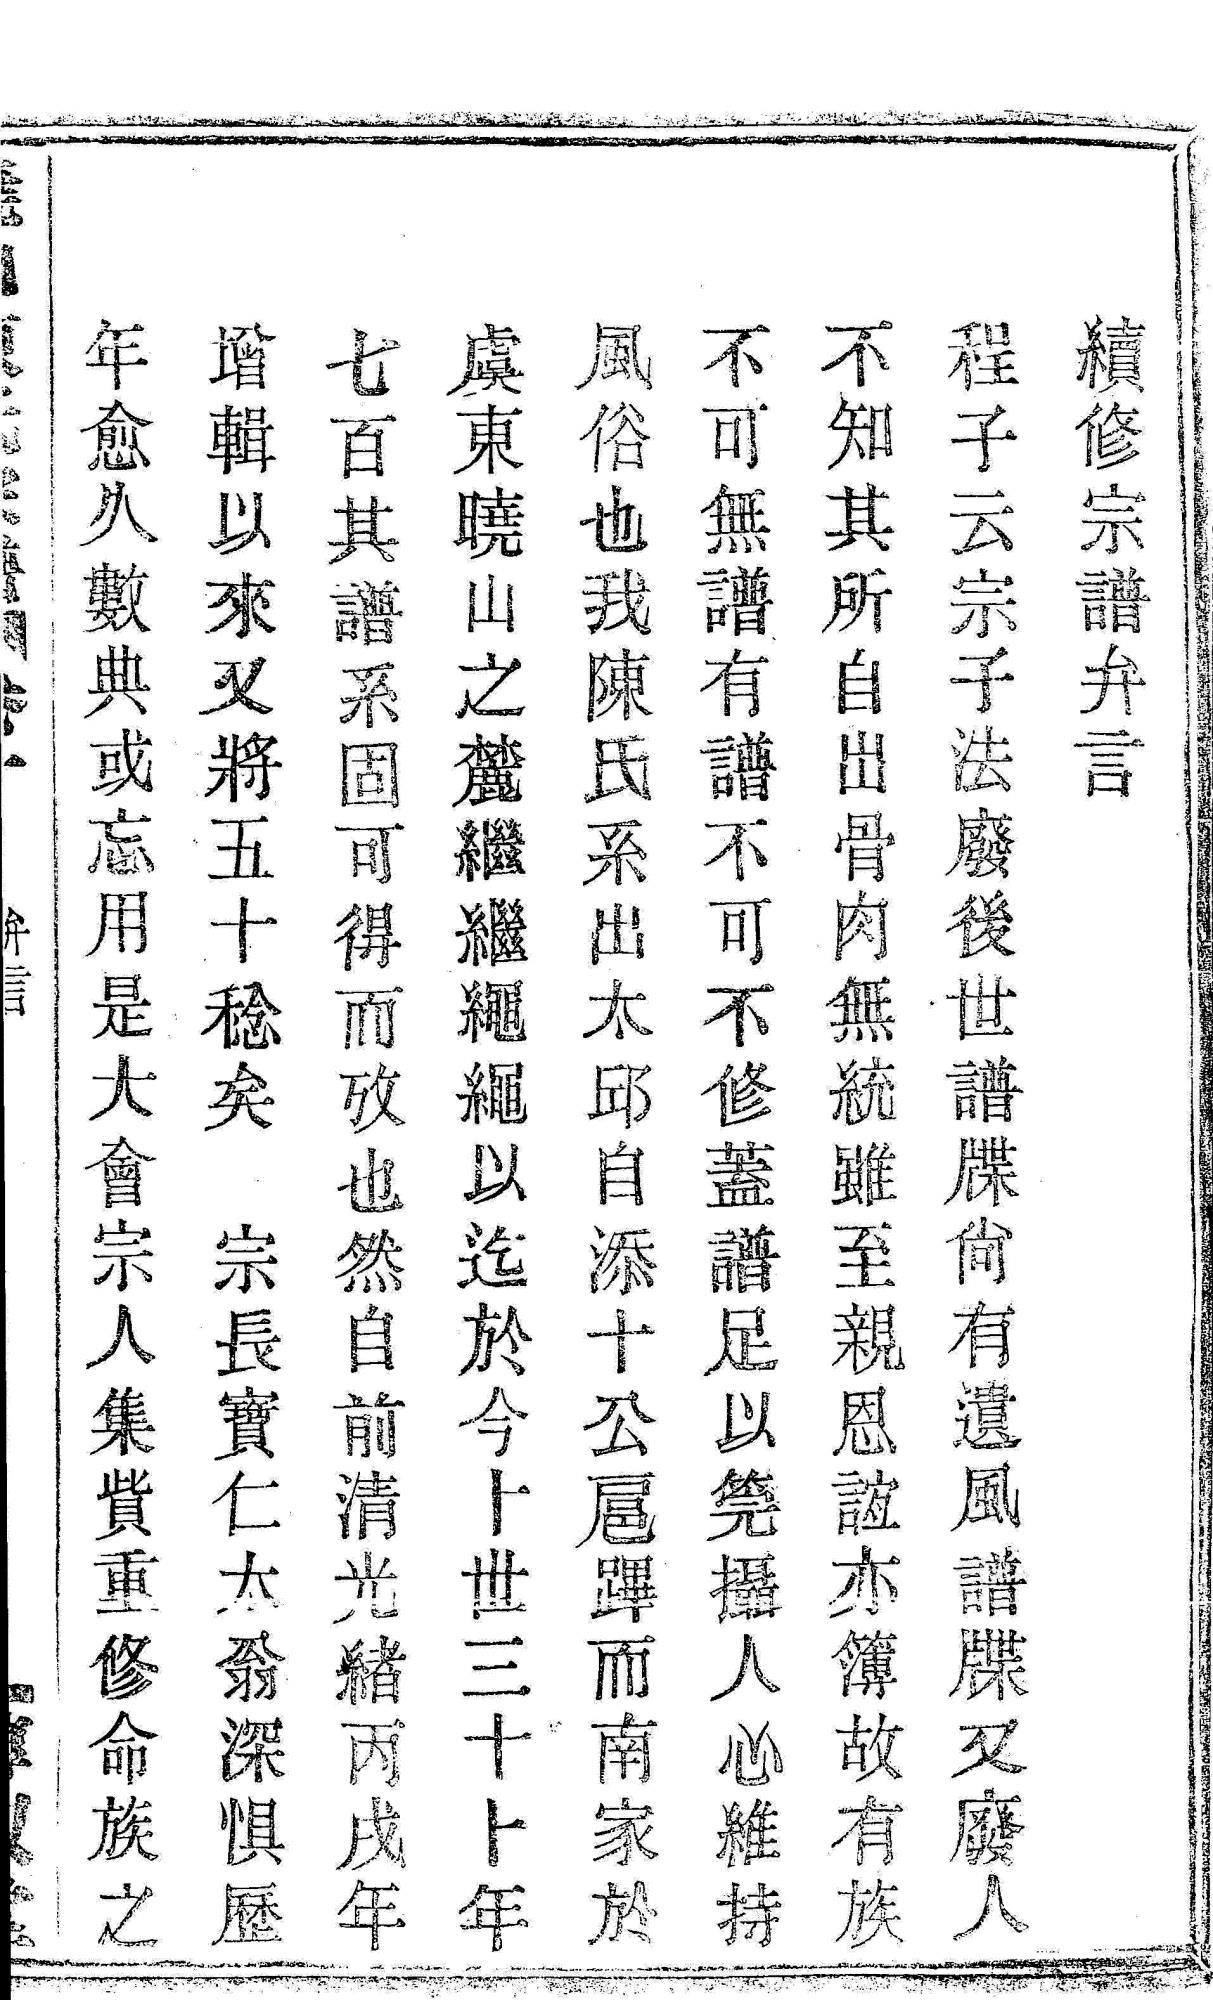 續修宗譜弁言
程子云宗子法廢後世譜牒尙有遺風譜牒又廢人
不知其所自出骨肉無統雖至親恩誼亦簿故有族
不可無譜有譜不可不修蓋譜足以筦攝人心維持
風俗也我陳氏系出太邱自添十公扈蹕而南家於
虞東曉山之麓繼繼繩繩以迄於今卜世三十卜年
七百其譜系固可得而攷也然自前清光緒丙戌年
增輯以來又將五十稔矣 宗長寶仁太翁深惧歷
年愈久數典或忘用是大會宗人集貲重修命族之
弁言